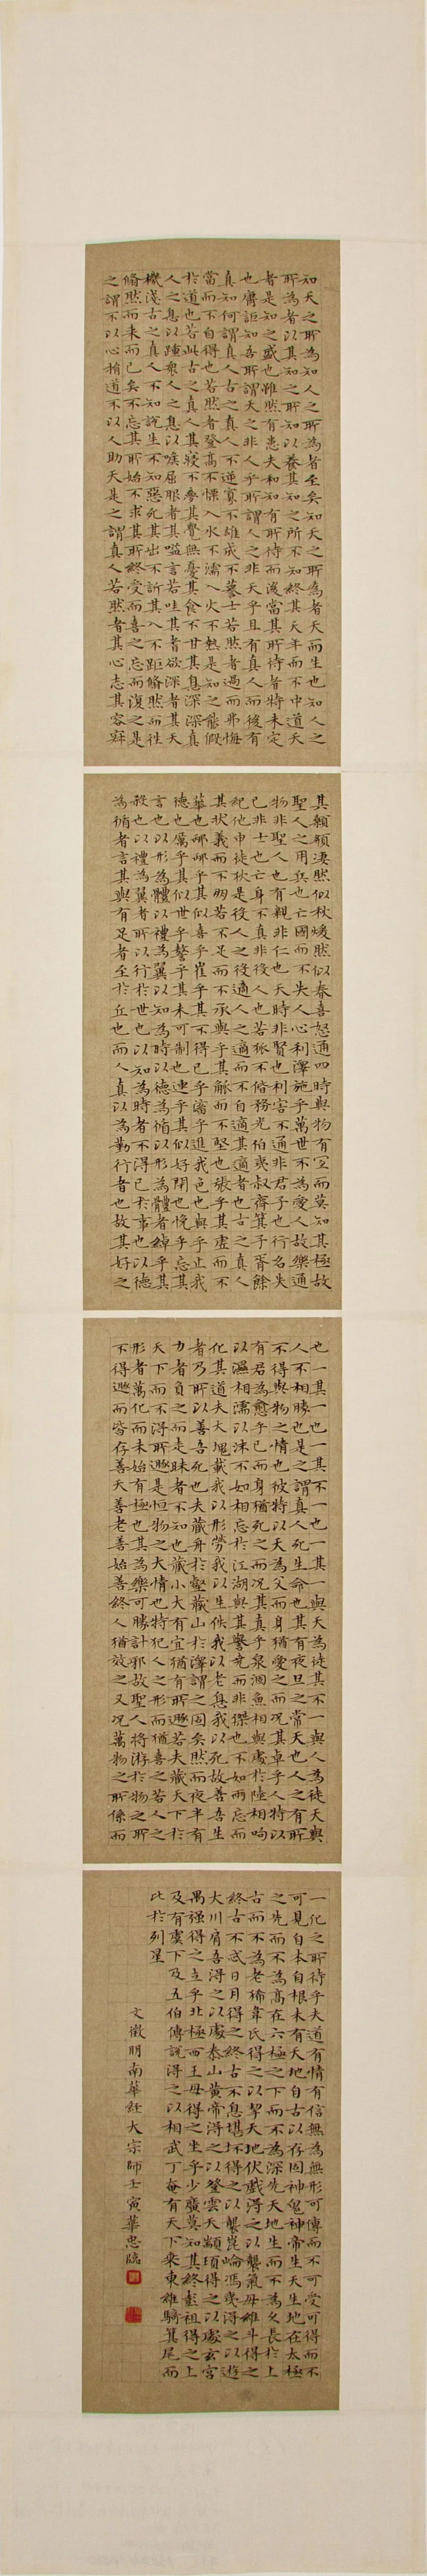 知天之所為知人之所為者至矣知天之所為者天而生也知人之
所為者以其知之所知以養其知之所不知終其天年而不中道夭
者是知之盛也雖然有患夫和知有所待而後當其所待者特未定
也庸詎知吾所謂天之非人乎所謂人之非天乎且有真人而後有
真知何謂真人古之真人不逆寡不雄成不謩士若然者過而弗悔
當而不自得也若然者登高不慄入水不濡入火不熱是知之能假
於道也若此古之真人其寢不夢其覺無憂其食不甘其息深深真
人之息以踵衆人之息以喉屈服者其嗌言若哇其耆欲深者其天
機淺古之真人不知說生不知惡死其出不訢其入不距翛然而往
翛然而来而已矣不忘其所始不求其所終受而喜之忘而復之是
之謂不以心捐道不以人助天是之謂真人若然者其心志其容寂
其顙頯凄然似秋煖然似春喜怒通四時與物有宜而莫知其極故
聖人之用兵也亡國而不失人心利澤施乎萬世不為愛人故樂通
物非聖人也有親非仁也天時非賢也利害不通非君子也行名失
己非士也亡身不真非役人也若狐不偕務光伯夷叔齊箕子胥餘
紀他申徒狄是役人之役適人之適而不自適其適者也古之真人
其狀義而不朋若不足而不承與乎其觚而不堅也張乎其虛而不
華也邴邴乎其似喜乎崔乎其不得已乎滀乎進我色也與乎止我
德也厲乎其似世乎謷乎其未可制也連乎其似好閉也悗乎忘其
言也以形為體以禮為翼以知為時以德為循以形為體者綽乎其
殺也以禮為翼者所以行於世也以知為時者不得已於事也以德
為循者言其與有足者至於丘也而人真以為勤行者也故其好之
也一其一也一其不一也一其一與天為徒其不一與人為徒天與
人不相勝也是之謂真人死生命也其有夜旦之常天也人之有所
不得與物之情也彼特以天為父而身猶愛之而况其卓乎人特以
有君為愈乎已而身猶死之而况其真乎泉涸魚相與處於陸相呴
以濕相濡以沫不如相忘於江湖與其譽堯而非桀也不如兩忘而
化其道夫大塊載我以形勞我以生佚我以老息我以死故善吾生
者乃所以善吾死也夫藏舟於壑藏山於澤謂之固矣然而夜半有
力者負之而走昧者不知也藏小大有宜猶有所遯若夫藏天下於
天下而不得所遯是恒物之大情也特犯人之形而猶喜之若人之
形者萬化而未始有極也其為樂可勝計邪故聖人將游於物之所
不得遯而皆存善夭善老善始善終人猶效之又况萬物之所係而
一化之所待乎夫道有情有信無為無形可傳而不可受可得而不
可見自本自根未有天地自古以存固神鬼神帝生天生地在太極
之先而不為高在六極之下而不為深先天地生而不為久長於上
古而不為老狶韋氏得之以挈天地伏戲得之以襲氣母維斗得之
終古不忒日月得之終古不息堪坏得之以襲崑崙馮夷得之以遊
大川肩吾得之以處泰山黃帝得之以登雲天顓頊得之以處玄宮
禺强得之立乎北極西王母得之坐乎少廣莫知其終彭祖得之上
及有虞下及五伯傅說得之以相武丁奄有天下乘東維騎箕尾而
比於列星
文徵明南華經大宗師壬寅華思臨